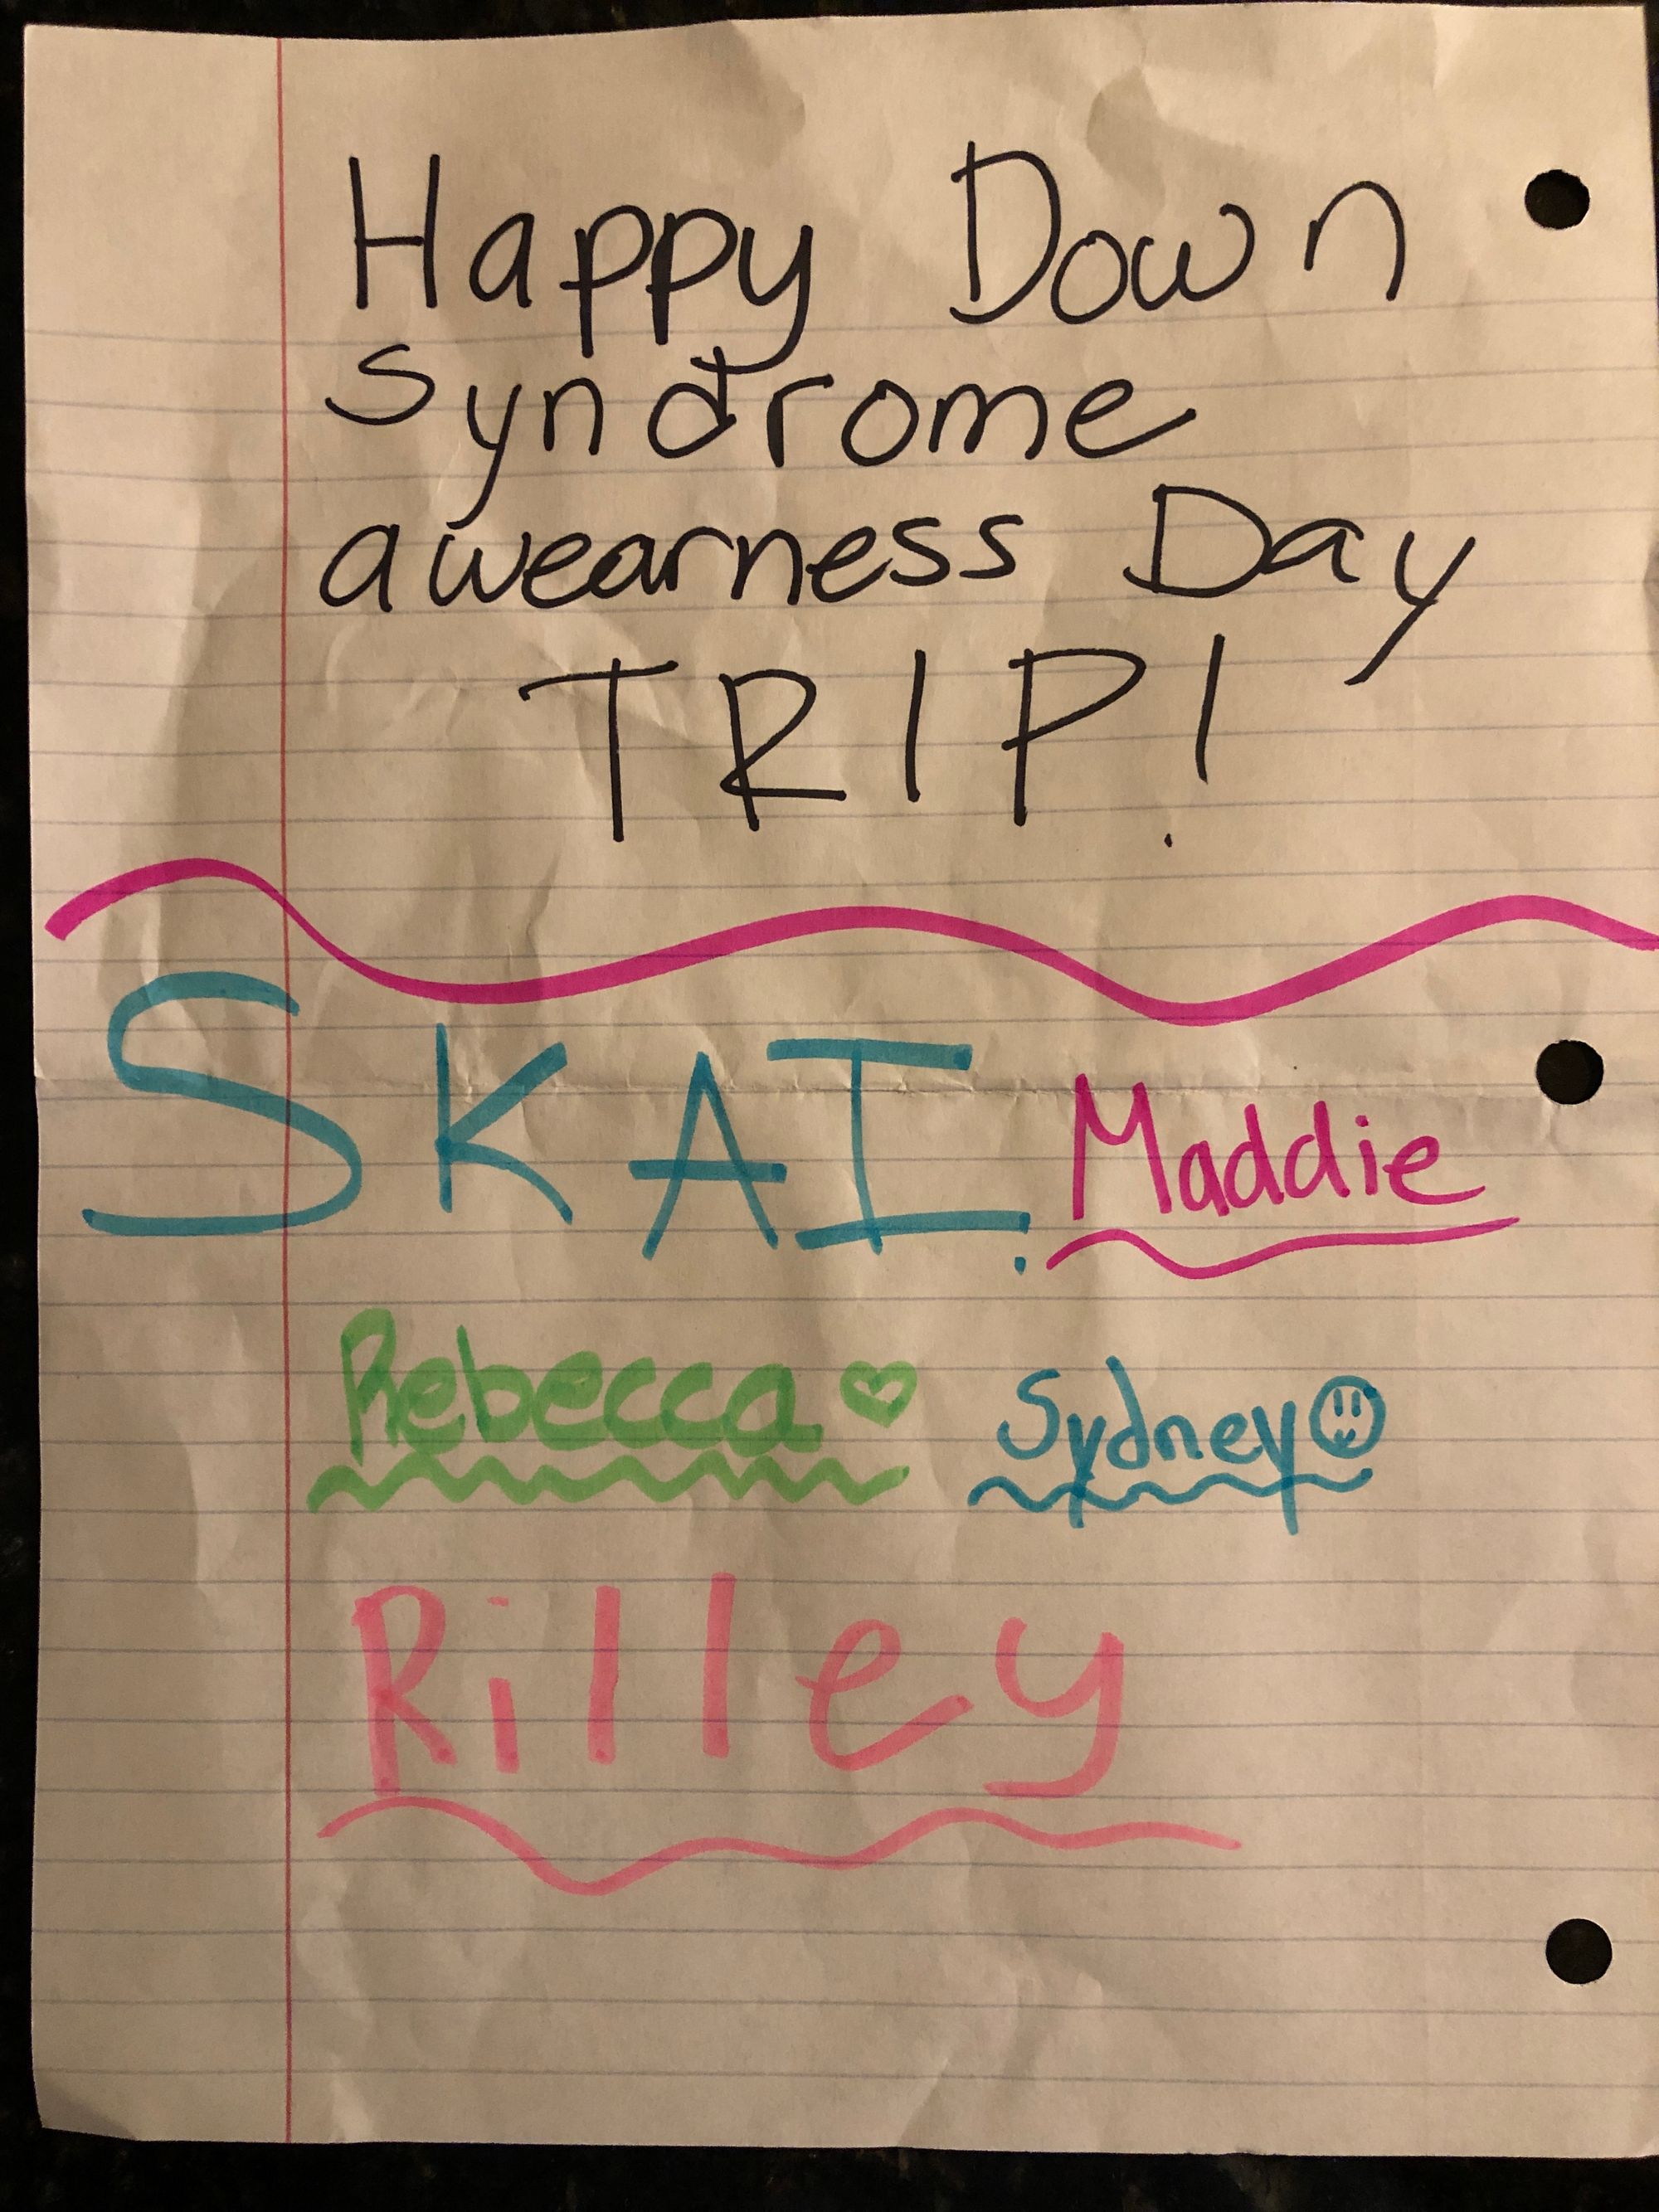 Happy Down
syndrome
awearness Day
TRIP!
SKAI. Maddie
Rebecca Sydney
Rilley